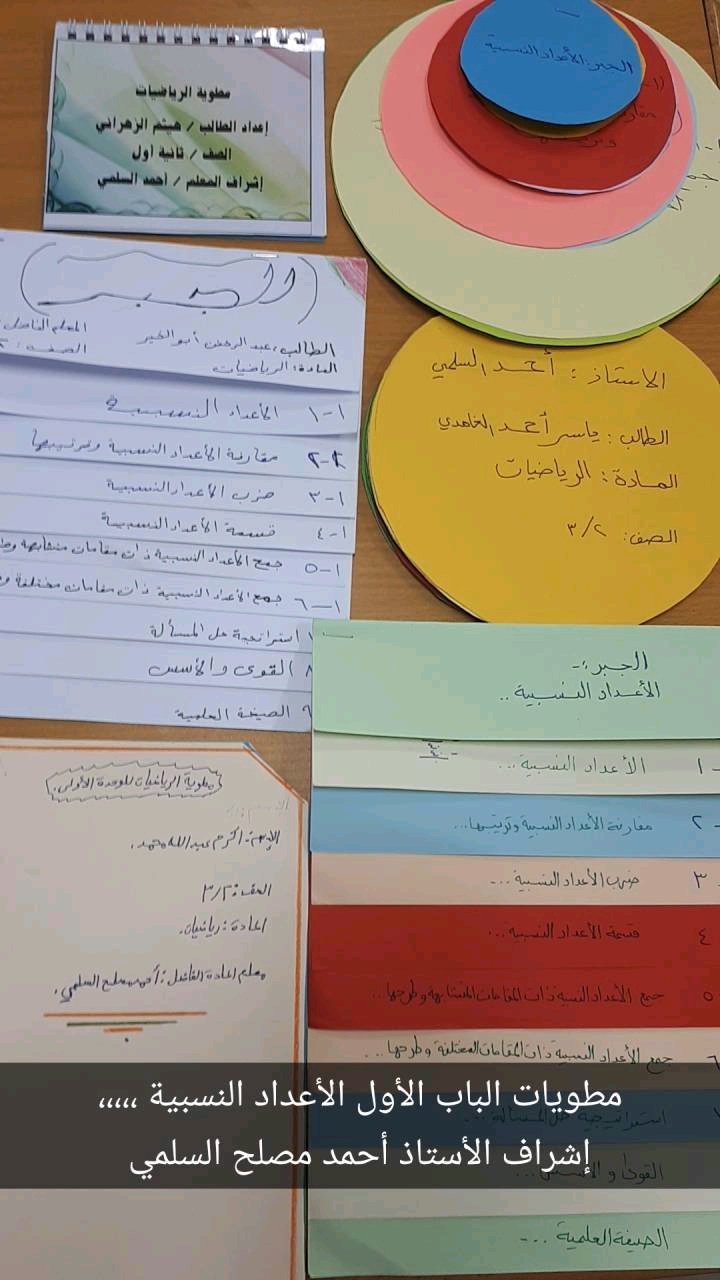 مطوية الرياضيات
إعداد الطالب / هيثم الزهراني
الصف / ثانية أول
إشراف المعلم / أحمد السلمي
الجبر: الأعداد النسبية
الجبر
المعلم الفاضل:
الطالب: عبد الرحمن أبو الخير
الصف:
المادة: الرياضيات
١-١ الأعداد النسبية
٢-٢ مقارنة الأعداد النسبية وترتيبها
١-٣ ضرب الأعداد النسبية
١-٤ قسمة الأعداد النسبية
١-٥ جمع الأعداد النسبية ذات مقامات متشابهة
١-٦ جمع الأعداد النسبية ذات مقامات مختلفة
استراتيجية حل المسألة
القوى والأسس
٩ الصيغة العلمية
الاستاذ: أحمد السلمي
الطالب: ياسر أحمد الغامدي
المادة: الرياضيات
الصف: ٣/٢
الجبر:-
الأعداد النسبية..
١- الأعداد النسبية...
٢- مقارنة الأعداد النسبية وترتيبها...
٣- ضرب الأعداد النسبية...
٤ قسمة الأعداد النسبية...
٥ جمع الأعداد النسبية ذات المقامات المتشابهة وطرحها...
٦ جمع الأعداد النسبية ذات المقامات المختلفة وطرحها...
استراتيجية حل المسألة...
القوى و الأسس...
الصيغة العلمية...
مطوية الرياضيات للوحدة الأولى.
الإسم: أكرم عبدالله محمد.
الصف: ٣/٢
المادة: رياضيات.
معلم المادة الفاضل: أحمد مصلح السلمي.
مطويات الباب الأول الأعداد النسبية ،،،،،
إشراف الأستاذ أحمد مصلح السلمي